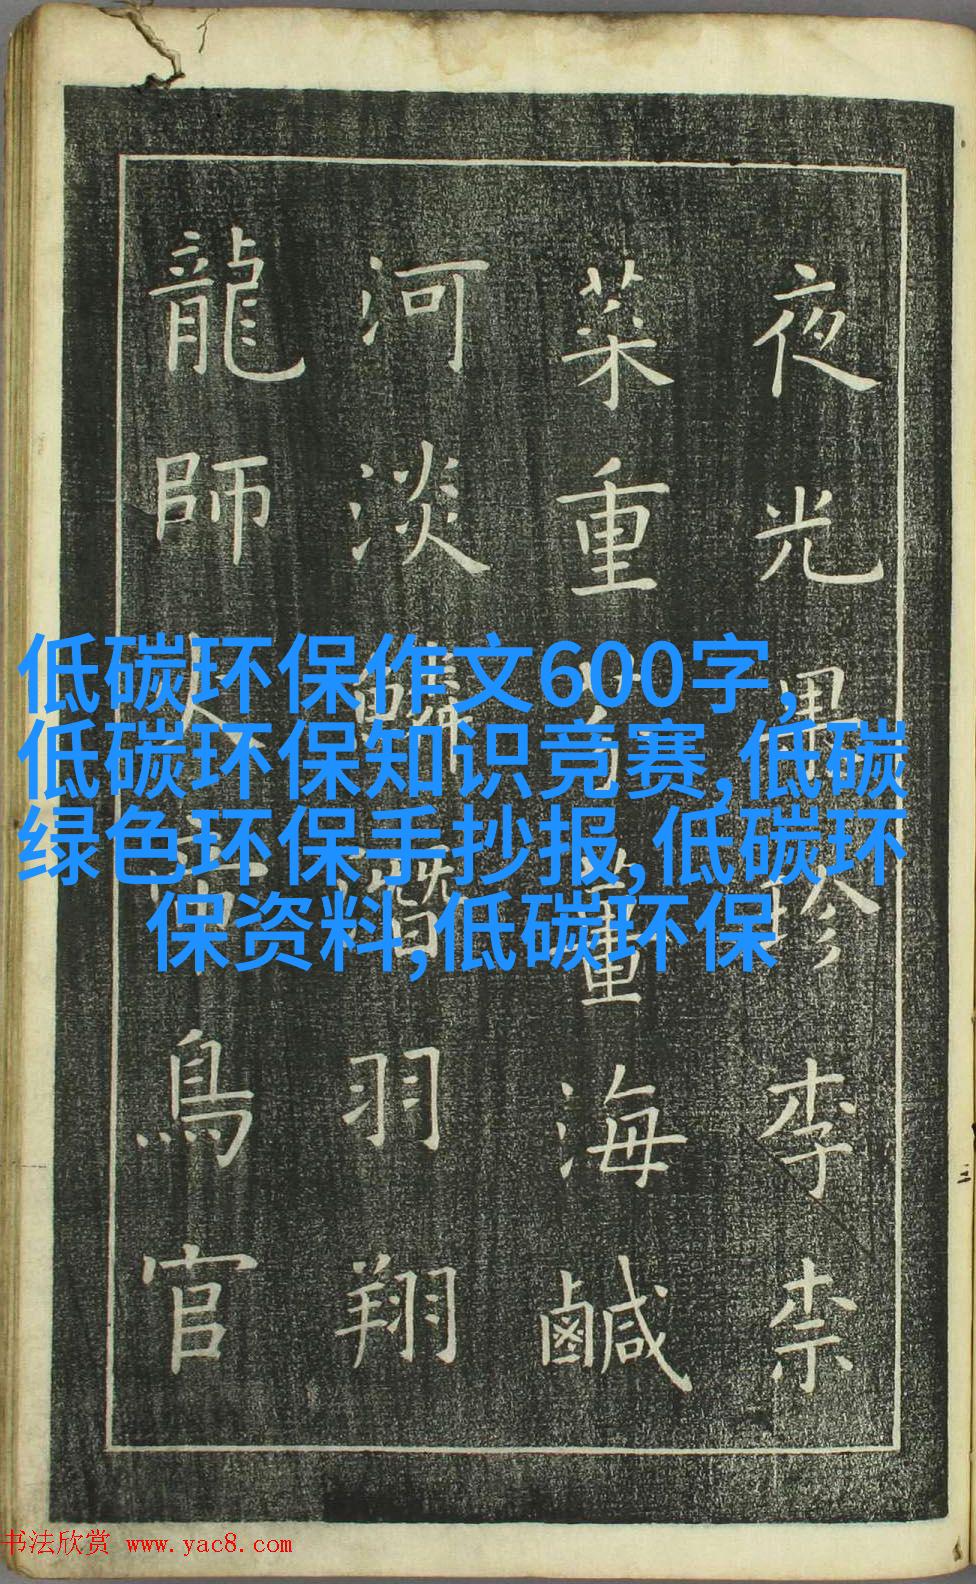 夜光果珍李柰
菜重芥薑海鹹
河淡鱗潛羽翔
龍師火帝鳥官
低碳环保作文600字,
低碳环保知识竞赛,低碳
绿色环保手抄报,低碳环
保资料,低碳环保
书法欣赏 www.yac8.com